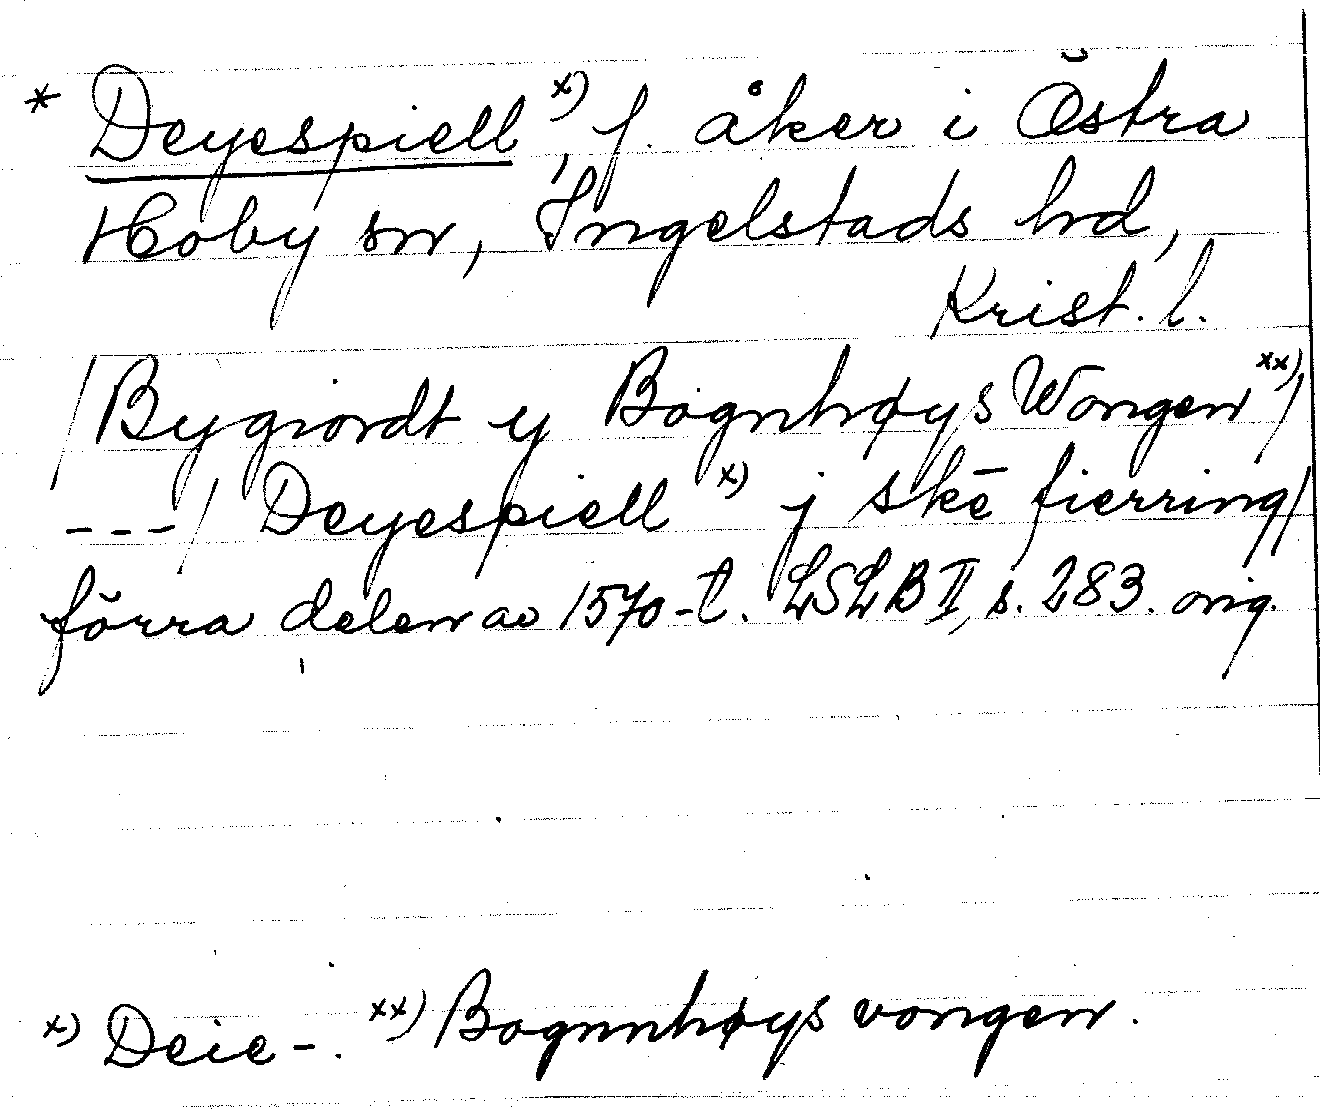 * Deyespiell x), f. åker i Östra
Hoby sn, Ingelstads hd,
Krist. l.
/Bygiordt y Bognhøys Wongen xx)/
---/ Deyespiell x) j skē fierring/
förra delen av 1570-t. LSLB II, s. 283. orig.
x) Deie-. xx) Bognnhøys vongen.